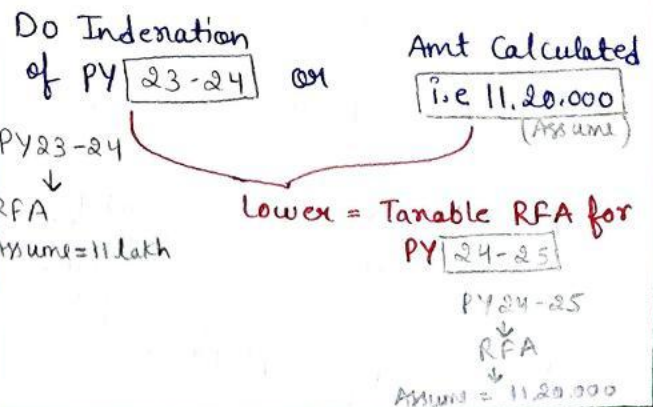 Do Indexation
of PY 23-24 or
Amt Calculated
i.e 11,20,000
(Assume)
PY23-24
↓
RFA
Assume=11 lakh
Lower = Taxable RFA for
PY 24-25
PY24-25
↓
RFA
↓
Assume = 11,20,000